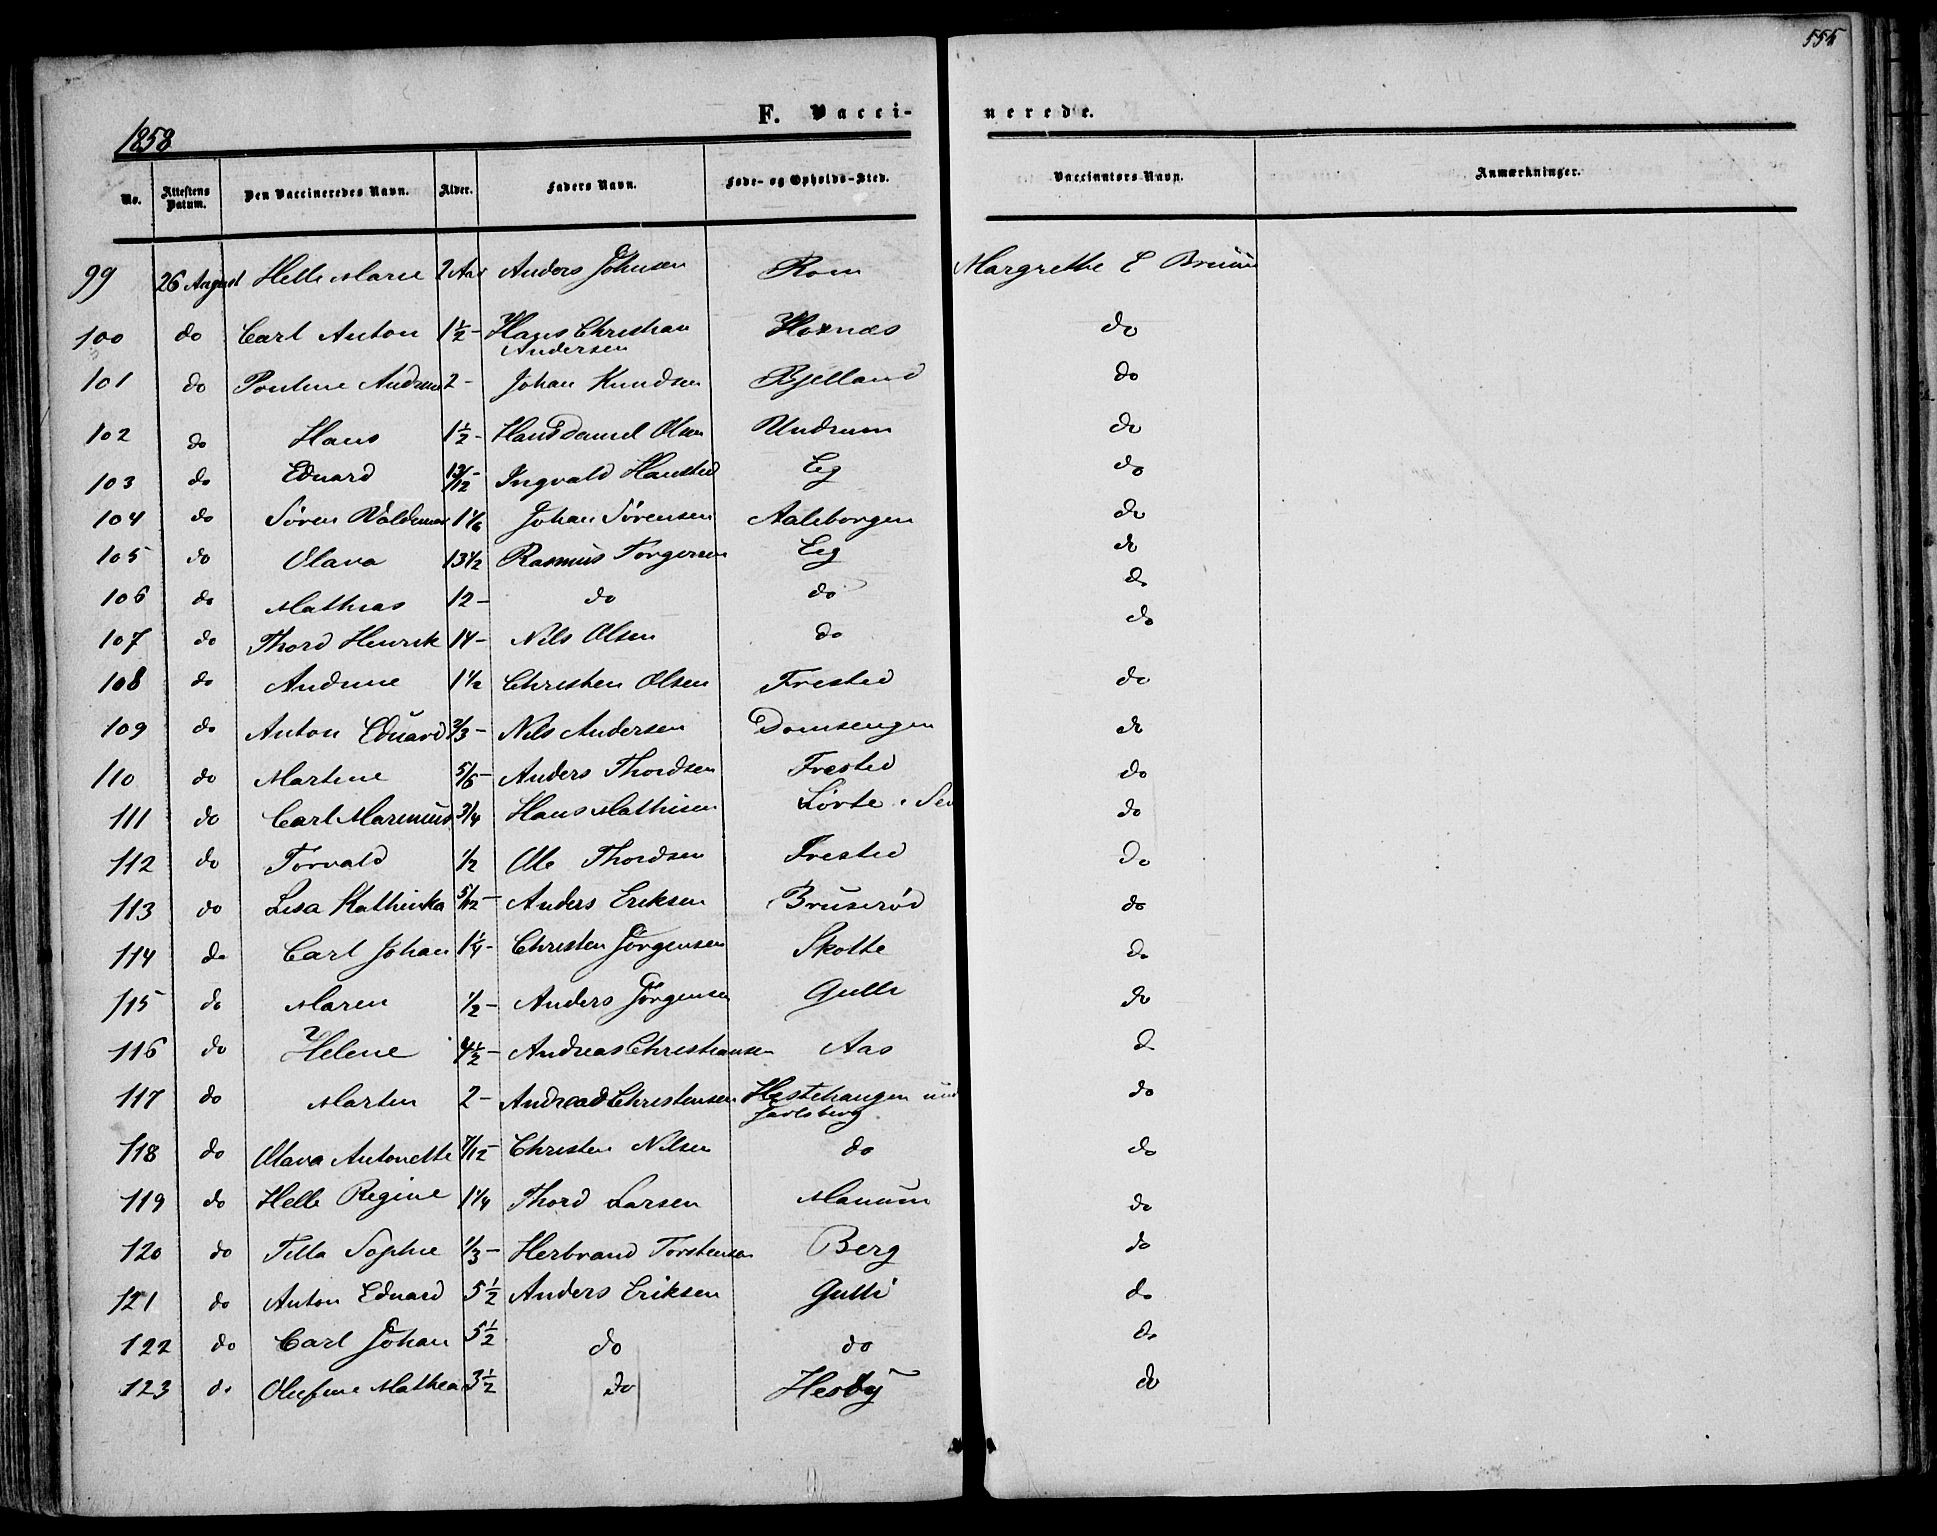 555
1858
F. Vacci- nerede.
No. Attestens Datum. Den Vaccineredes Navn. Alder. Faders Navn. Føde- og Opholds-Sted. Vaccinators Navn. Anmærkninger.
99 26 August Helle Marie 2 Aar Anders Johnsen Rom Margrethe E Bruun
100 do Carl Anton 1½ - Hans Christian Andersen Hornæs do
101 do Pouline Andrine 2 - Johan Knudsen Bjelland do
102 do Hans 1½ - Hans Daniel Olsen Undrum do
103 do Eduard - Ingvald Hansted Eeg do
104 do Søren Waldemar 1 1/6 Johan Sørensen Aaleborgen do
105 do Olava 13½ Rasmus Torgersen Eeg do
106 do Mathias 12 - do do do
107 do Thord Henrik 14 - Nils Olsen do do
108 do Andrine 1½ Christen Olsen Frested do
109 do Anton Eduard 2/3 - Nils Andersen Domsengen do
110 do Martine 5/6 - Anders Thordsen Frested do
111 do Carl Marinius 3/4 Hans Mathisen Løvte i Sem do
112 do Torvald 1/2 Ole Thordsen Frested do
113 do Lisa Kathinka 5/12 - Anders Eriksen Bruserød do
114 do Carl Johan 1¼ - Christen Jørgensen Skotte do
115 do Maren 1/2 - Anders Jørgensen Gulli do
116 do Helene 4½ - Andreas Christiansen Aas do
117 do Martin 2 - Andreas Christensen Hestehaugen und Jarlsberg do
118 do Olava Antonette 7/12 - Christen Nilsen do do
119 do Helle Regine 1¼ Thord Larsen Manum do
120 do Tilla Sophie 1/3 - Herbrand Torstensen Berg do
121 do Anton Eduard 5½ Anders Eriksen Gulli do
122 do Carl Johan 5½ do do do
123 do Olufine Mathea 3½ do Hesby do